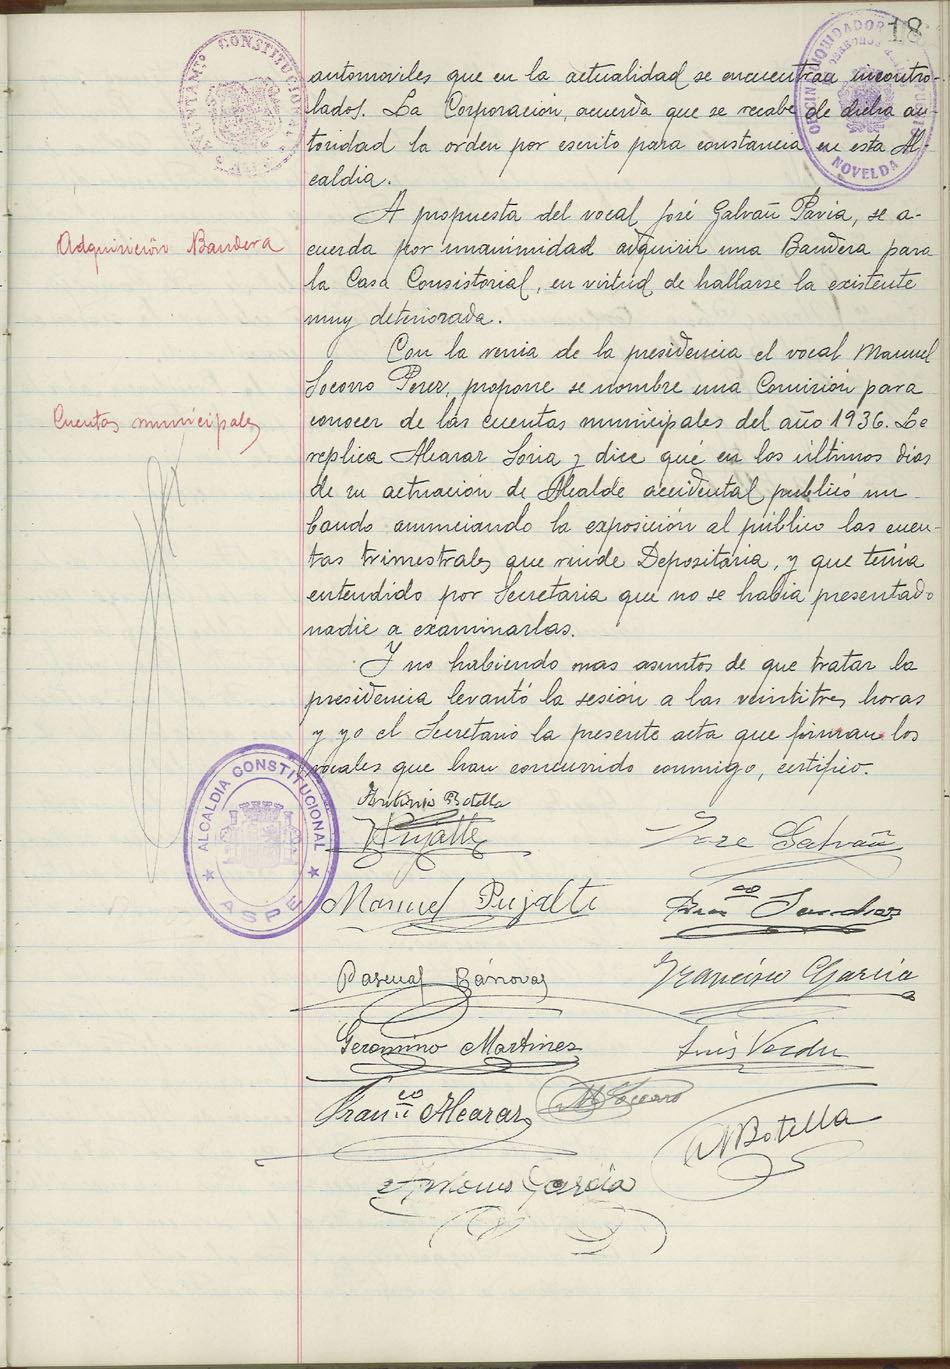 18
AYUNTAMTO CONSTITUCIONAL
OFICINA LIQUIDADORA
NOVELDA
automoviles que en la actualidad se encuentran incontro-
lados. La Corporación, acuerda que se recabe de dicha au-
toridad la orden por escrito para constancia en esta Al-
caldia.
Adquisición Bandera
A propuesta del vocal José Galvañ Pavia, se a-
cuerda por unanimidad adquirir una Bandera para
la Casa Consistorial, en virtud de hallarse la existente
muy deteriorada.
Con la venia de la presidencia el vocal Manuel
Socorro Perez, propone se nombre una Comisión para
Cuentas municipales
conocer de las cuentas municipales del año 1936. Le
replica Alcaraz Soria y dice qué en los últimos dias
de su actuación de Alcalde accidental publicó un
bando anunciando la exposición al público las cuen-
tas trimestrales que rinde Depositaria, y que tenia
entendido por Secretaria que no se habia presentado
nadie a examinarlas.
Y no habiendo mas asuntos de que tratar la
presidencia levantó la sesión a las veintitres horas
y yo el Secretario la presente acta que firman los
vocales que han concurrido conmigo, certifico.
ALCALDIA CONSTITUCIONAL
ASPE
Antonio Botella
Pujalte
Jose Galvañ
Manuel Pujalte
Franco Sanchez
Pascual Cánovas
Francisco García
Geronimo Martinez
Luis Verdu
Franco Alcaraz
M Socorro
M Botella
Antonio García